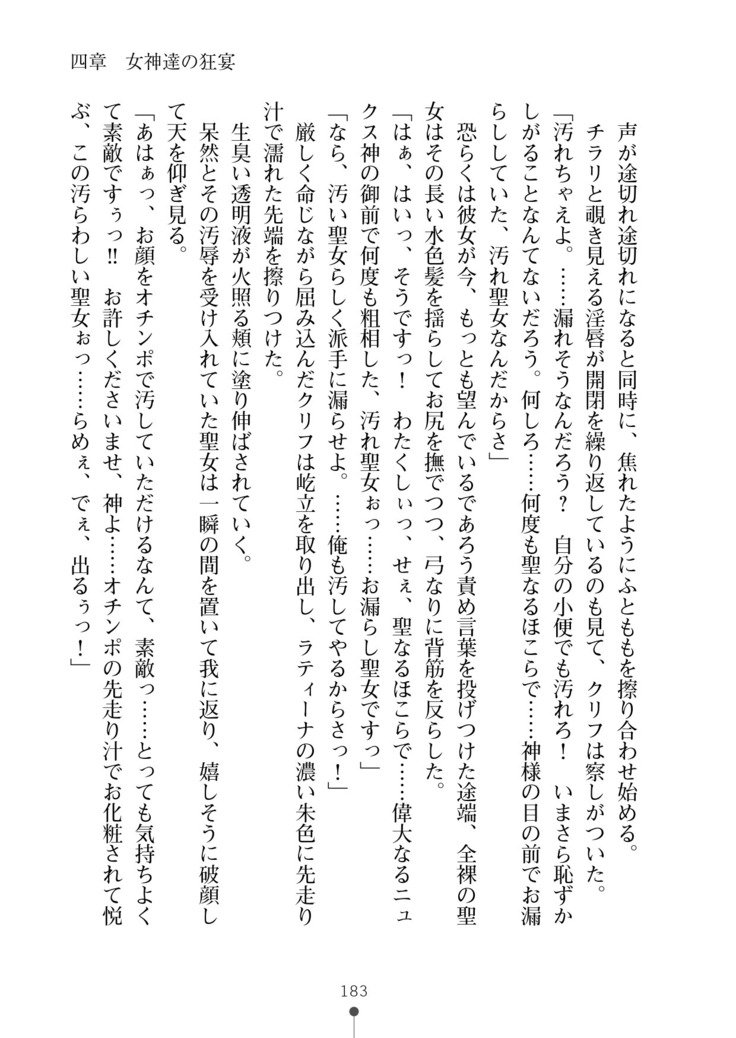 四章　女神達の狂宴
声が途切れ途切れになると同時に、焦れたようにふとももを擦り合わせ始める。
チラリと覗き見える淫唇が開閉を繰り返しているのも見て、クリフは察しがついた。
「汚れちゃえよ。……漏れそうなんだろう？　自分の小便でも汚れろ！　いまさら恥ずか
しがることなんてないだろう。何しろ……何度も聖なるほこらで……神様の目の前でお漏
らししていた、汚れ聖女なんだからさ」
恐らくは彼女が今、もっとも望んでいるであろう責め言葉を投げつけた途端、全裸の聖
女はその長い水色髪を揺らしてお尻を撫でつつ、弓なりに背筋を反らした。
「はぁ、はいっ、そうですっ！　わたくしぃっ、せぇ、聖なるほこらで……偉大なるニュ
クス神の御前で何度も粗相した、汚れ聖女ぉっ……お漏らし聖女ですっ」
「なら、汚い聖女らしく派手に漏らせよ。……俺も汚してやるからさっ！」
厳しく命じながら屈み込んだクリフは屹立を取り出し、ラティーナの濃い朱色に先走り
汁で濡れた先端を擦りつけた。
生臭い透明液が火照る頬に塗り伸ばされていく。
呆然とその汚辱を受け入れていた聖女は一瞬の間を置いて我に返り、嬉しそうに破顔し
て天を仰ぎ見る。
「あはぁっ、お顔をオチンポで汚していただけるなんて、素敵っ……とっても気持ちよく
て素敵ですぅっ!!　お許しくださいませ、神よ……オチンポの先走り汁でお化粧されて悦
ぶ、この汚らわしい聖女ぉっ……らめぇ、でぇ、出るぅっ！」
183